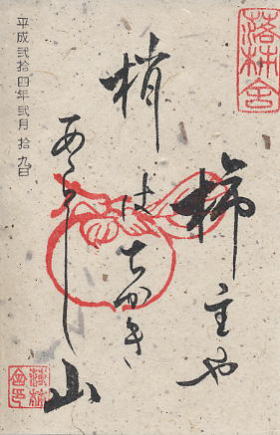 落柿舎
柿主や
梢はちかき
あらし山
平成弐拾四年弐月 拾九日
落柿舎印